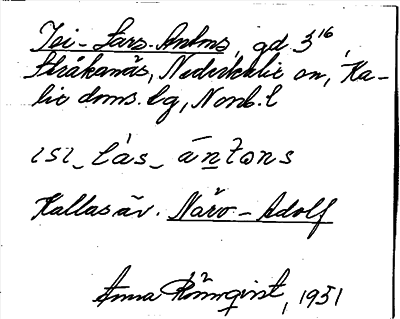 Isi-Lars-Antons, gd 3¹⁶,
Stråkanäs, Nederkalix sn, Ka-
lix doms. lg, Norrb. l
ısı_ lás_ ántons
Kallas äv. Närv-Adolf
Anna Rönnqvist, 1931